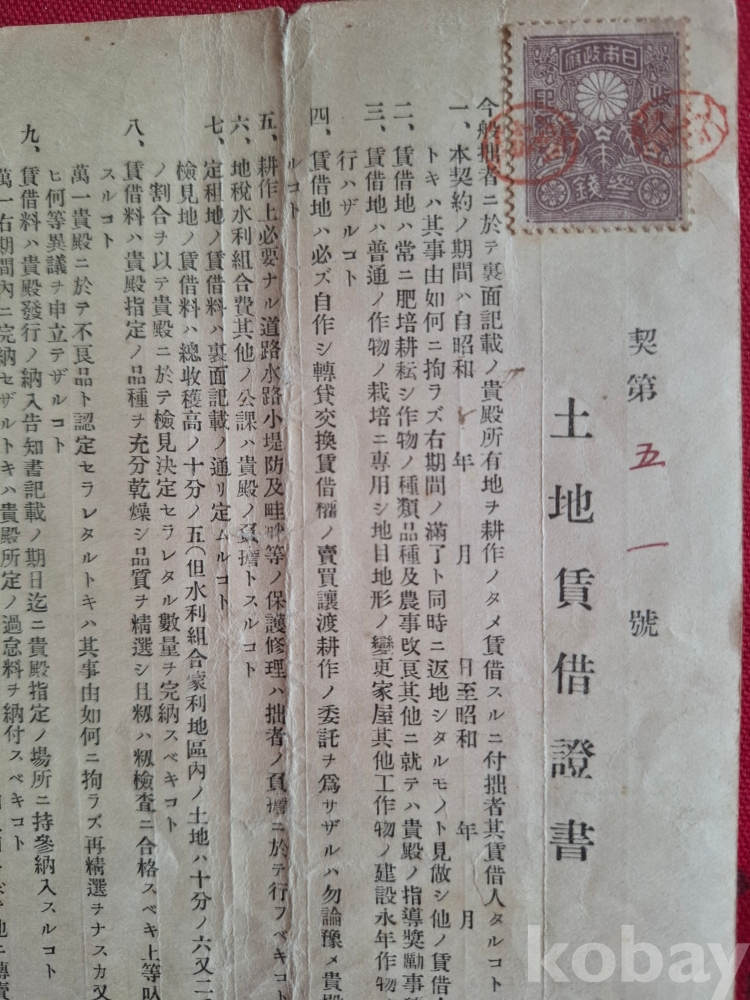 日本政府
収入
印紙
参錢
契第五一號
土地賃借證書
今般拙者ニ於テ裏面記載ノ貴殿所有地ヲ耕作ノタメ賃借スルニ付拙者其賃借人タルコト
一、本契約ノ期間ハ自昭和 年 月 日至昭和 年 月
トキハ其事由如何ニ拘ラズ右期間ノ滿了ト同時ニ返地シタルモノト見做シ他ノ賃借
二、賃借地ハ常ニ肥培耕耘シ作物ノ種類品種及農事改良其他ニ就テハ貴殿ノ指導奬勵事
三、賃借地ハ普通ノ作物ノ栽培ニ專用シ地目地形ノ變更家屋其他工作物ノ建設永年作物
行ハザルコト
四、賃借地ハ必ズ自作シ轉貸交換賃借權ノ賣買讓渡耕作ノ委託ヲ爲サザルハ勿論豫メ貴殿
ルコト
五、耕作上必要ナル道路水路小堤防及畦畔等ノ保護修理ハ拙者ノ負擔ニ於テ行フベキコト
六、地稅水利組合費其他ノ公課ハ貴殿ノ負擔トスルコト
七、定租地ノ賃借料ハ裏面記載ノ通リ定ムルコト
檢見地ノ賃借料ハ總收穫高ノ十分ノ五(但水利組合蒙利地區內ノ土地ハ十分ノ六又ニ
ノ割合ヲ以テ貴殿ニ於テ檢見決定セラレタル數量ヲ完納スベキコト
八、賃借料ハ貴殿指定ノ品種ヲ充分乾燥シ品質ヲ精選シ且籾ハ籾檢査ニ合格スベキ上等叺
スルコト
萬一貴殿ニ於テ不良品ト認定セラレタルトキハ其事由如何ニ拘ラズ再精選ヲナスカ又
ヒ何等異議ヲ申立テザルコト
九、賃借料ハ貴殿發行ノ納入告知書記載ノ期日迄ニ貴殿指定ノ場所ニ持參納入スルコト
萬一右期間內ニ完納セザルトキハ貴殿所定ノ過怠料ヲ納付スベキコト
kobay